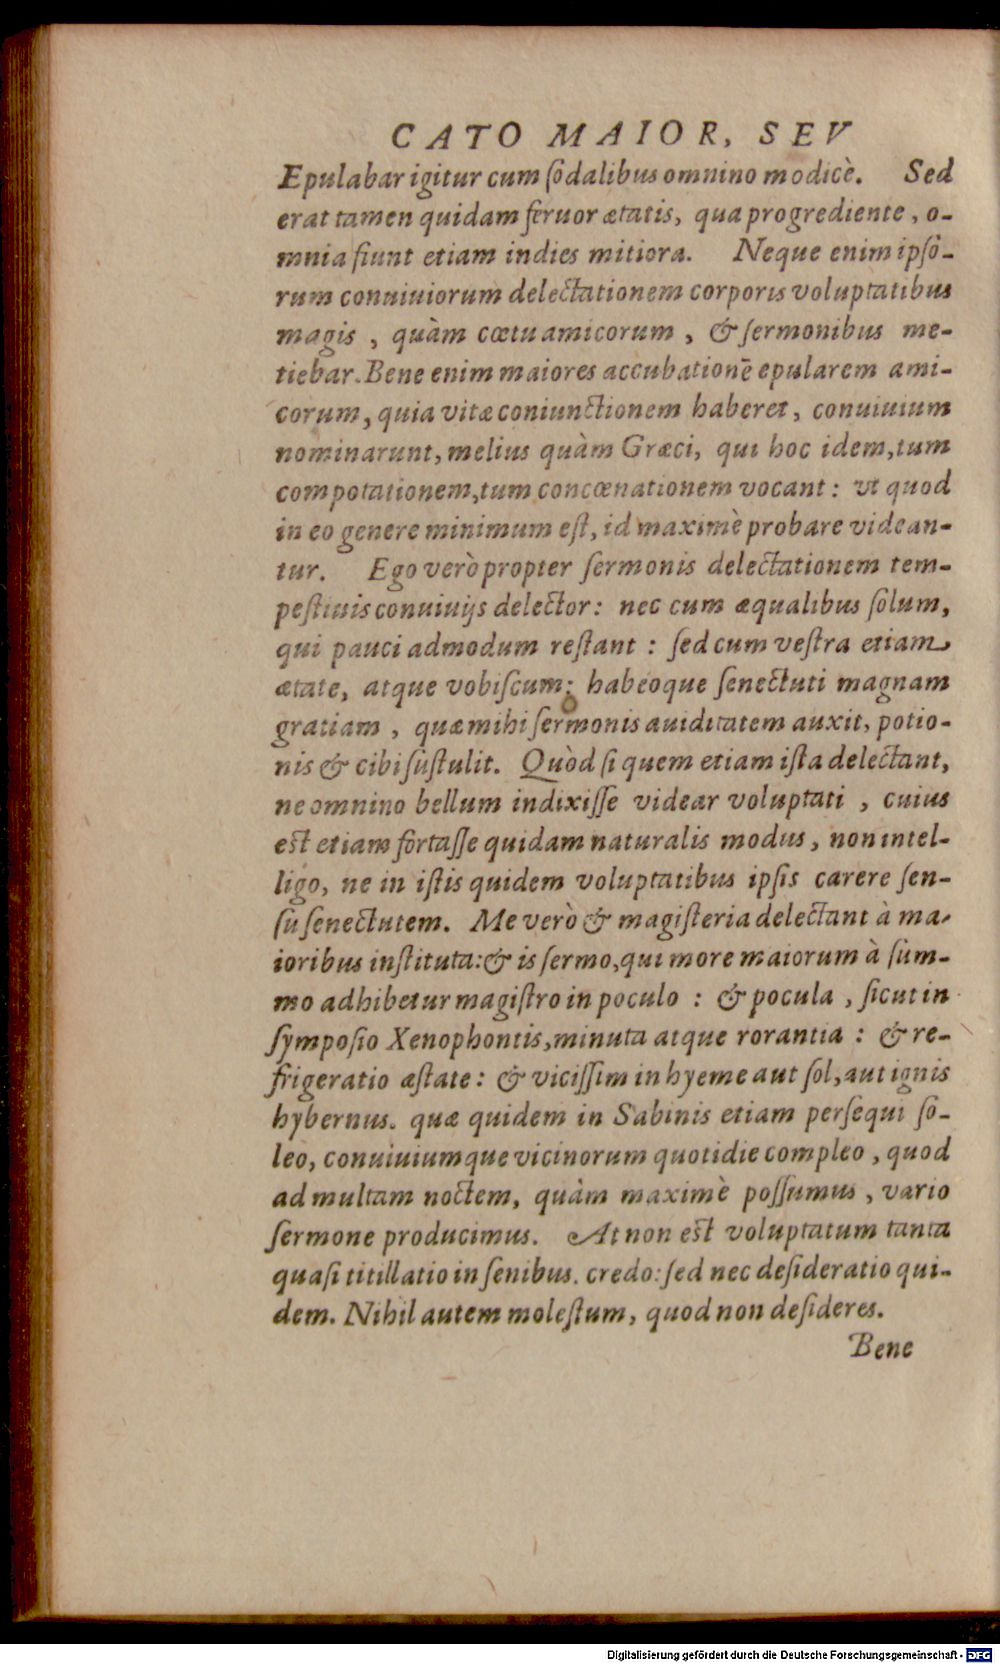 CATO MAIOR, SEV
Epulabar igitur cum ſodalibus omnino modicè. Sed
erat tamen quidam feruor ætatis, qua progrediente, o-
mnia fiunt etiam indies mitiora. Neque enim ipſo-
rum conuiuiorum delectationem corporis voluptatibus
magis, quàm cœtu amicorum, & ſermonibus me-
tiebar. Bene enim maiores accubationē epularem ami-
corum, quia vitæ coniunctionem haberet, conuiuium
nominarunt, melius quàm Græci, qui hoc idem, tum
compotationem, tum concœnationem vocant: vt quod
in eo genere minimum eſt, id maximè probare videan-
tur. Ego verò propter ſermonis delectationem tem-
peſtiuis conuiuijs delector: nec cum æqualibus ſolum,
qui pauci admodum reſtant: ſed cum veſtra etiam
ætate, atque vobiſcum: habeoque ſenectuti magnam
gratiam, quæ mihi ſermonis auiditatem auxit, potio-
nis & cibi ſuſtulit. Quòd ſi quem etiam iſta delectant,
ne omnino bellum indixiſſe videar voluptati, cuius
est etiam fortaſſe quidam naturalis modus, non intel-
ligo, ne in iſtis quidem voluptatibus ipſis carere ſen-
ſu ſenectutem. Me verò & magiſteria delectant à ma-
ioribus inſtituta: & is ſermo, qui more maiorum à ſum-
mo adhibetur magiſtro in poculo: & pocula, ſicut in
ſympoſio Xenophontis, minuta atque rorantia: & re-
frigeratio æſtate: & viciſſim in hyeme aut ſol, aut ignis
hybernus. quæ quidem in Sabinis etiam perſequi ſo-
leo, conuiuiumque vicinorum quotidie compleo, quod
ad multam noctem, quàm maximè poſſumus, vario
ſermone producimus. At non est voluptatum tanta
quaſi titillatio in ſenibus. credo: ſed nec deſideratio qui-
dem. Nihil autem moleſtum, quod non deſideres.
Bene
Digitalisierung gefördert durch die Deutsche Forschungsgemeinschaft - DFG